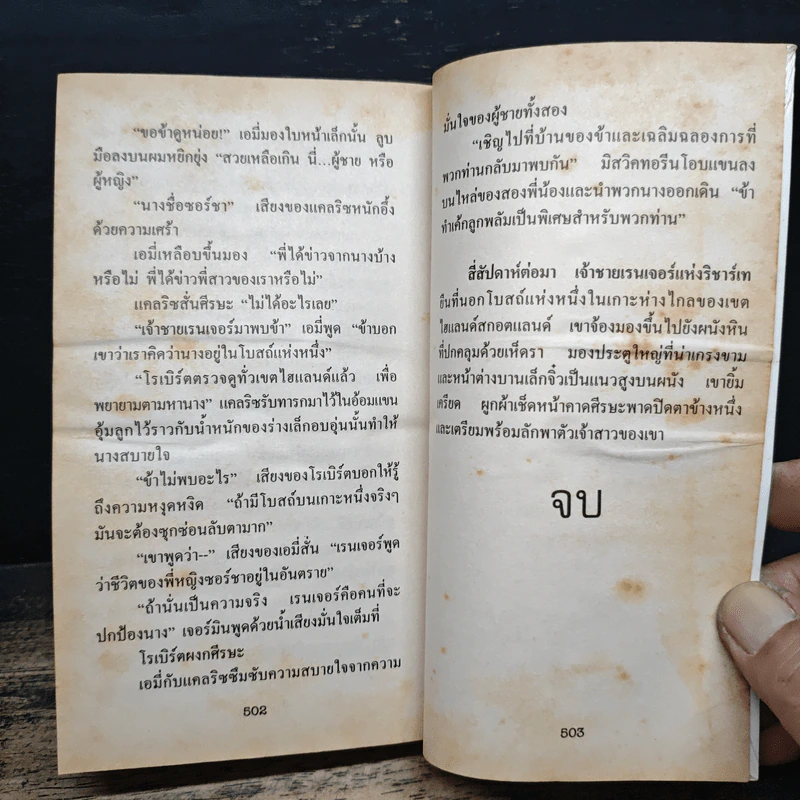 “ขอข้าดูหน่อย!” เอมี่มองใบหน้าเล็กนั้น ลูบ
มือลงบนผมหยิกยุ่ง “สวยเหลือเกิน นี่...ผู้ชาย หรือ
ผู้หญิง”
“นางชื่อซอร์ชา” เสียงของแคลริซหนักอึ้ง
ด้วยความเศร้า
เอมี่เหลือบขึ้นมอง “พี่ได้ข่าวจากนางบ้าง
หรือไม่ พี่ได้ข่าวพี่สาวของเราหรือไม่”
แคลริซสั่นศีรษะ “ไม่ได้อะไรเลย”
“เจ้าชายเรนเจอร์มาพบข้า” เอมี่พูด “ข้าบอก
เขาว่าเราคิดว่านางอยู่ในโบสถ์แห่งหนึ่ง”
“โรเบิร์ตตรวจดูทั่วเขตไฮแลนด์แล้ว เพื่อ
พยายามตามหานาง” แคลริซรับทารกมาไว้ในอ้อมแขน
อุ้มลูกไว้ราวกับน้ำหนักของร่างเล็กอบอุ่นนั้นทำให้
นางสบายใจ
“ข้าไม่พบอะไร” เสียงของโรเบิร์ตบอกให้รู้
ถึงความหงุดหงิด “ถ้ามีโบสถ์บนเกาะหนึ่งจริงๆ
มันจะต้องซุกซ่อนลับตามาก”
“เขาพูดว่า--” เสียงของเอมี่สั่น “เรนเจอร์พูด
ว่าชีวิตของพี่หญิงซอร์ชาอยู่ในอันตราย”
“ถ้านั่นเป็นความจริง เรนเจอร์คือคนที่จะ
ปกป้องนาง” เจอร์มินพูดด้วยน้ำเสียงมั่นใจเต็มที่
โรเบิร์ตผงกศีรษะ
เอมี่กับแคลริซซึมซับความสบายใจจากความ
502
มั่นใจของผู้ชายทั้งสอง
“เชิญไปที่บ้านของข้าและเฉลิมฉลองการที่
พวกท่านกลับมาพบกัน” มิสวิคทอรีนโอบแขนลง
บนไหล่ของสองพี่น้องและนำพวกนางออกเดิน “ข้า
ทำเค้กลูกพลัมเป็นพิเศษสำหรับพวกท่าน”
สี่สัปดาห์ต่อมา เจ้าชายเรนเจอร์แห่งริชาร์เท
ยืนที่นอกโบสถ์แห่งหนึ่งในเกาะห่างไกลของเขต
ไฮแลนด์สกอตแลนด์ เขาจ้องมองขึ้นไปยังผนังหิน
ที่ปกคลุมด้วยเห็ดรา มองประตูใหญ่ที่น่าเกรงขาม
และหน้าต่างบานเล็กจิ๋วเป็นแนวสูงบนผนัง เขายิ้ม
เครียด ผูกผ้าเช็ดหน้าคาดศีรษะพาดปิดตาข้างหนึ่ง
และเตรียมพร้อมลักพาตัวเจ้าสาวของเขา
จบ
503